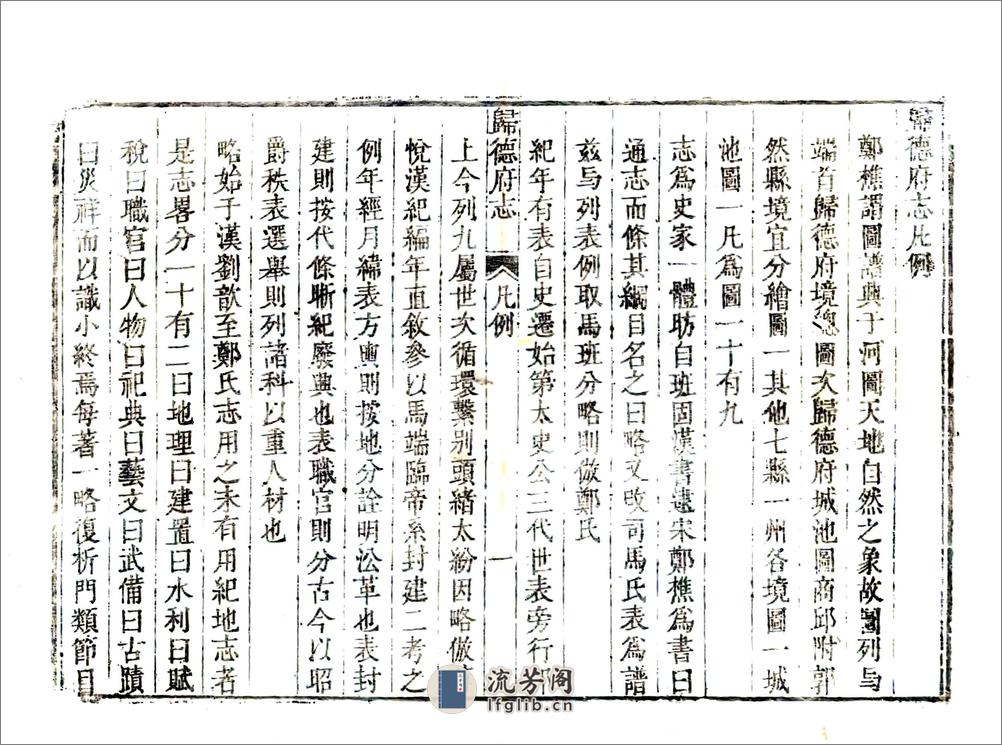 歸德府志凡例
鄭樵謂圖譜興于河圖天地自然之象故圖列与
端首歸德府境總圖次歸德府城池圖商邱附郭
然縣境宜分繪圖一其他七縣一州各境圖一城
池圖一凡爲圖一十有九
志爲史家一體昉自班固漢書逮宋鄭樵爲書曰
通志而條其綱目名之曰略又改司馬氏表爲譜
兹与列表例取馬班分略則倣鄭氏
紀年有表自史遷始第太史公三代世表旁行
歸德府志 凡例 一
上今列九屬世次循環繫别頭緒太紛因略倣
悅漢紀編年直敘參以馬端臨帝系封建二考之
例年經月緯表方輿則按地分詮明沿革也表封
建則按代條晰紀廢興也表職官則分古今以昭
爵秩表選舉則列諸科以重人材也
略始于漢劉歆至鄭氏志用之未有用紀地志者
是志畧分一十有二曰地理曰建置曰水利曰賦
稅曰職官曰人物曰祀典曰藝文曰武備曰古蹟
曰災祥而以識小終焉每著一略復析門類節目
流芳阁
lfglib.cn